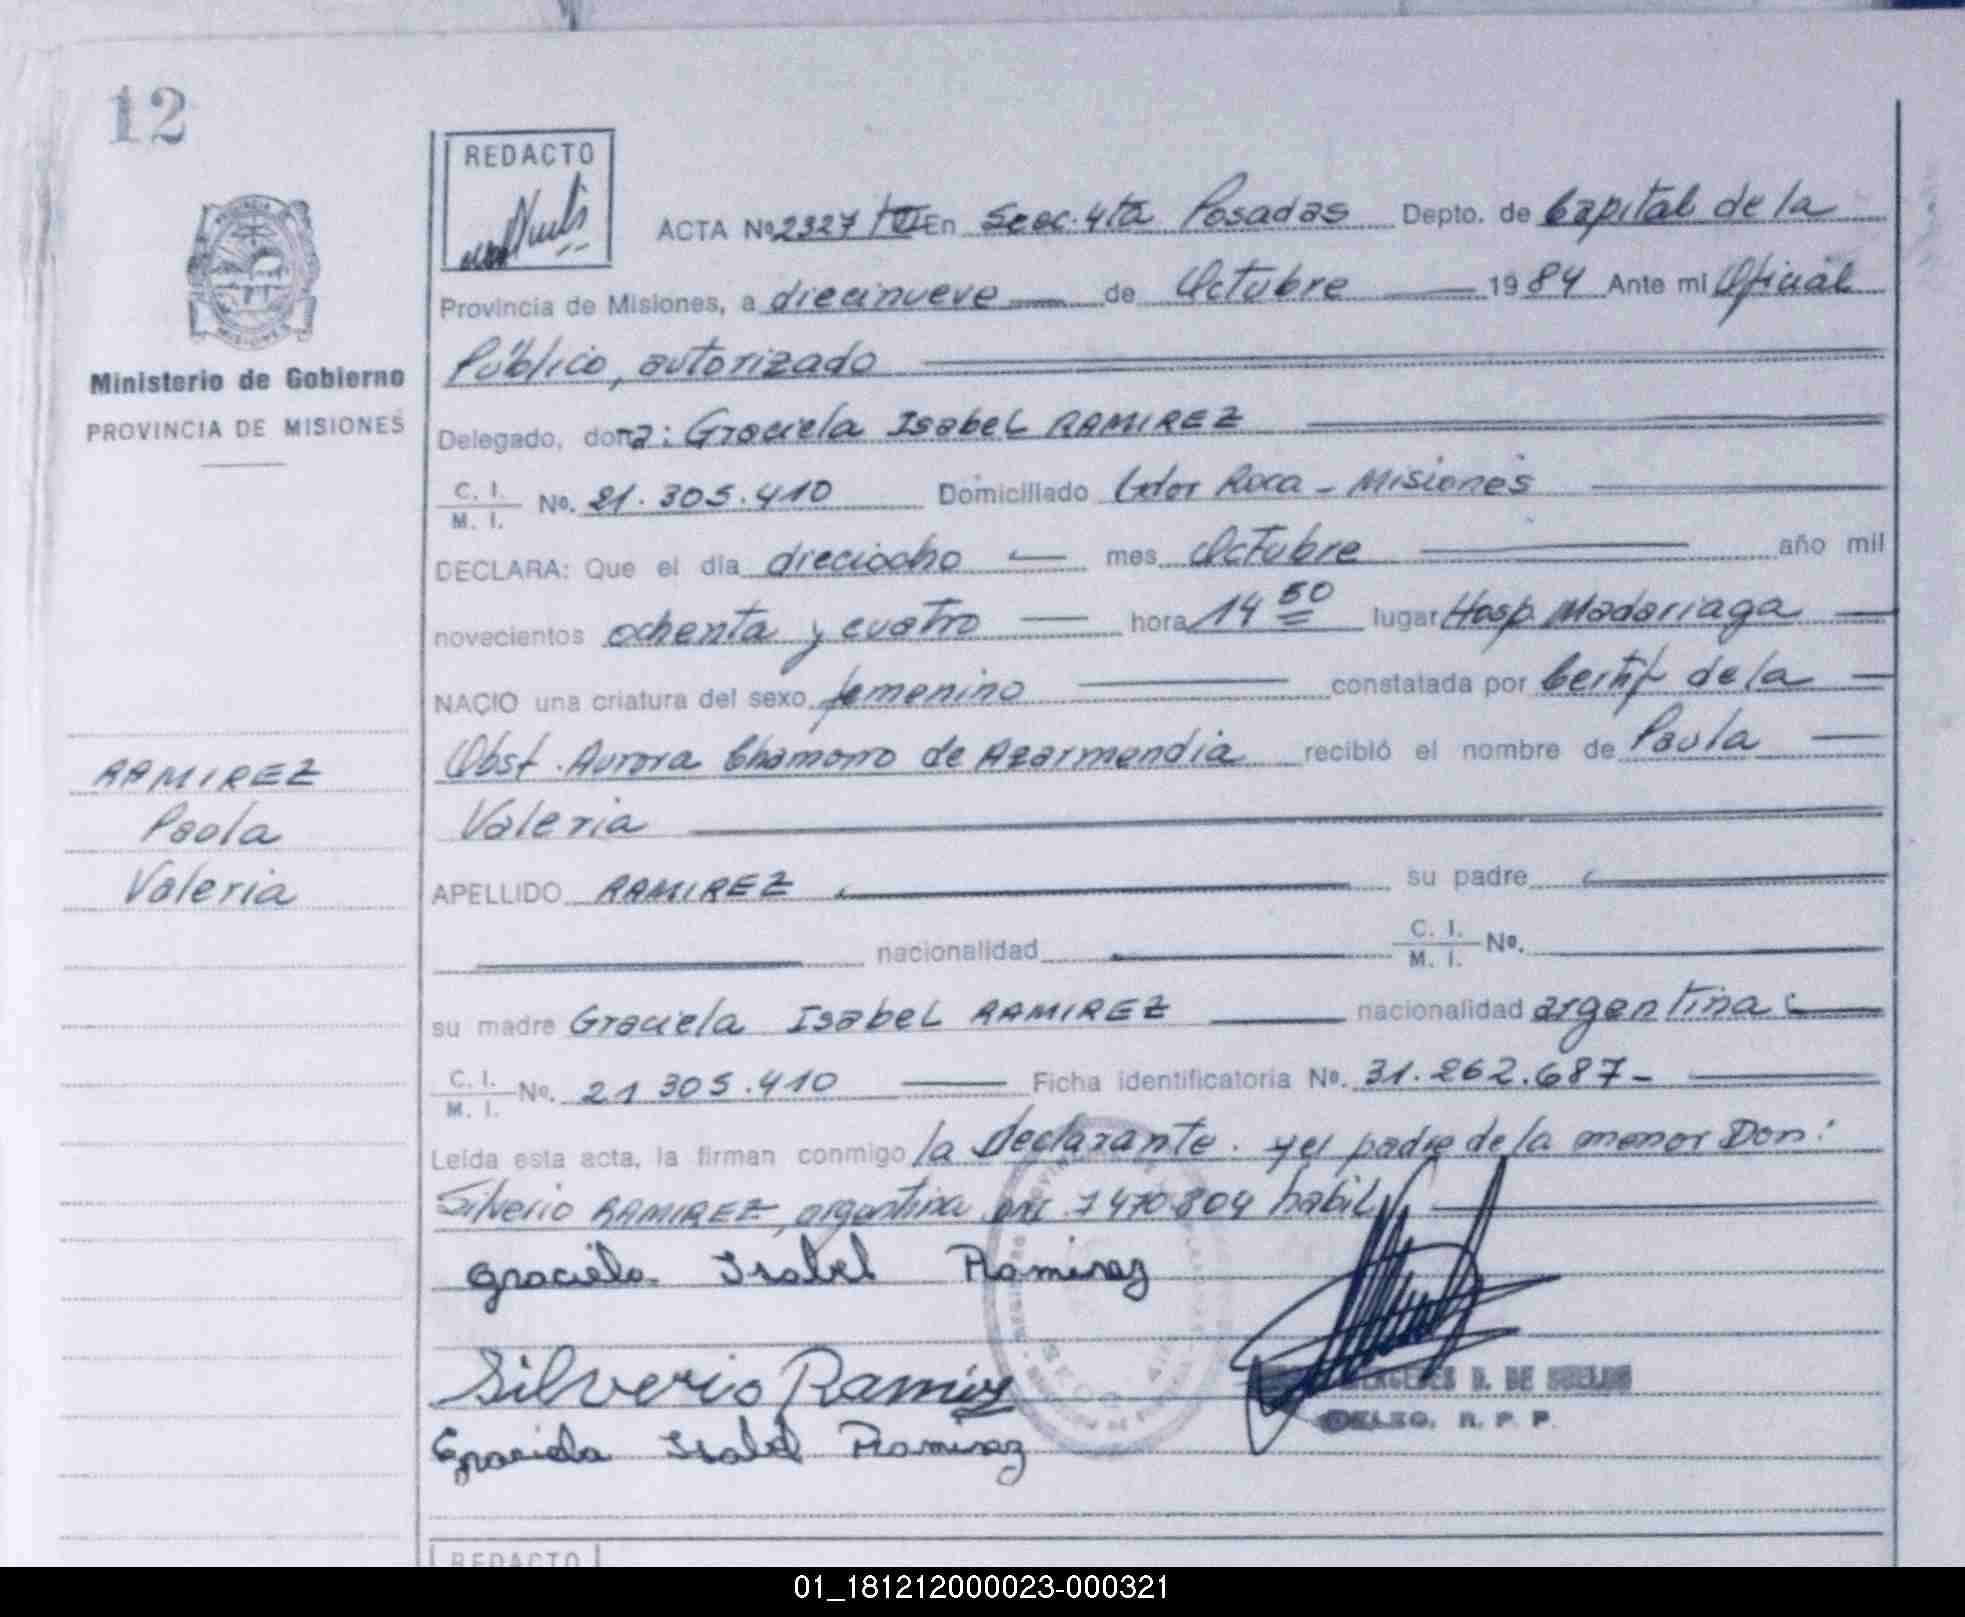 12
REDACTO
ACTA Nº 2327 En Secc. 4ta Posadas Depto. de Capital de la
Provincia de Misiones, a diecinueve de Octubre 1984 Ante mi Oficial
Público, autorizado
Ministerio de Gobierno
PROVINCIA DE MISIONES
Delegado, doña: Graciela Isabel RAMIREZ
C. I.
M. I. No. 21.305.410 Domiciliado Gdor Roca - Misiones
DECLARA: Que el día dieciocho mes Octubre año mil
novecientos ochenta y cuatro hora 14 50 lugar Hosp. Madariaga
NACIO una criatura del sexo femenino constatada por Certif de la
Obst. Aurora Chamorro de Azarmendia recibió el nombre de Paola
Valeria
RAMIREZ
Paola
Valeria
APELLIDO RAMIREZ su padre
nacionalidad C. I.
M. I. No.
su madre Graciela Isabel RAMIREZ nacionalidad argentina
C. I.
M. I. No. 21 305.410 Ficha identificatoria No. 31.262.687-
Leída esta acta, la firman conmigo la declarante. y el padre de la menor Don:
Silverio RAMIREZ, argentina 7 470.804 habil
Graciela Isabel Ramirez
Silverio Ramirez
Graciela Isabel Ramirez
D. DE
DELEG. R. P. P.
REDACTO
01_181212000023-000321